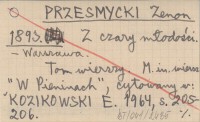 PRZESMYCKI Zenon
1893. Z czary młodości.
— Warszawa.
Tom wierszy. M. in. wiersz
"W Pieninach", cytowany w:
KOZIKOWSKI E. 1964, s. 205
206.